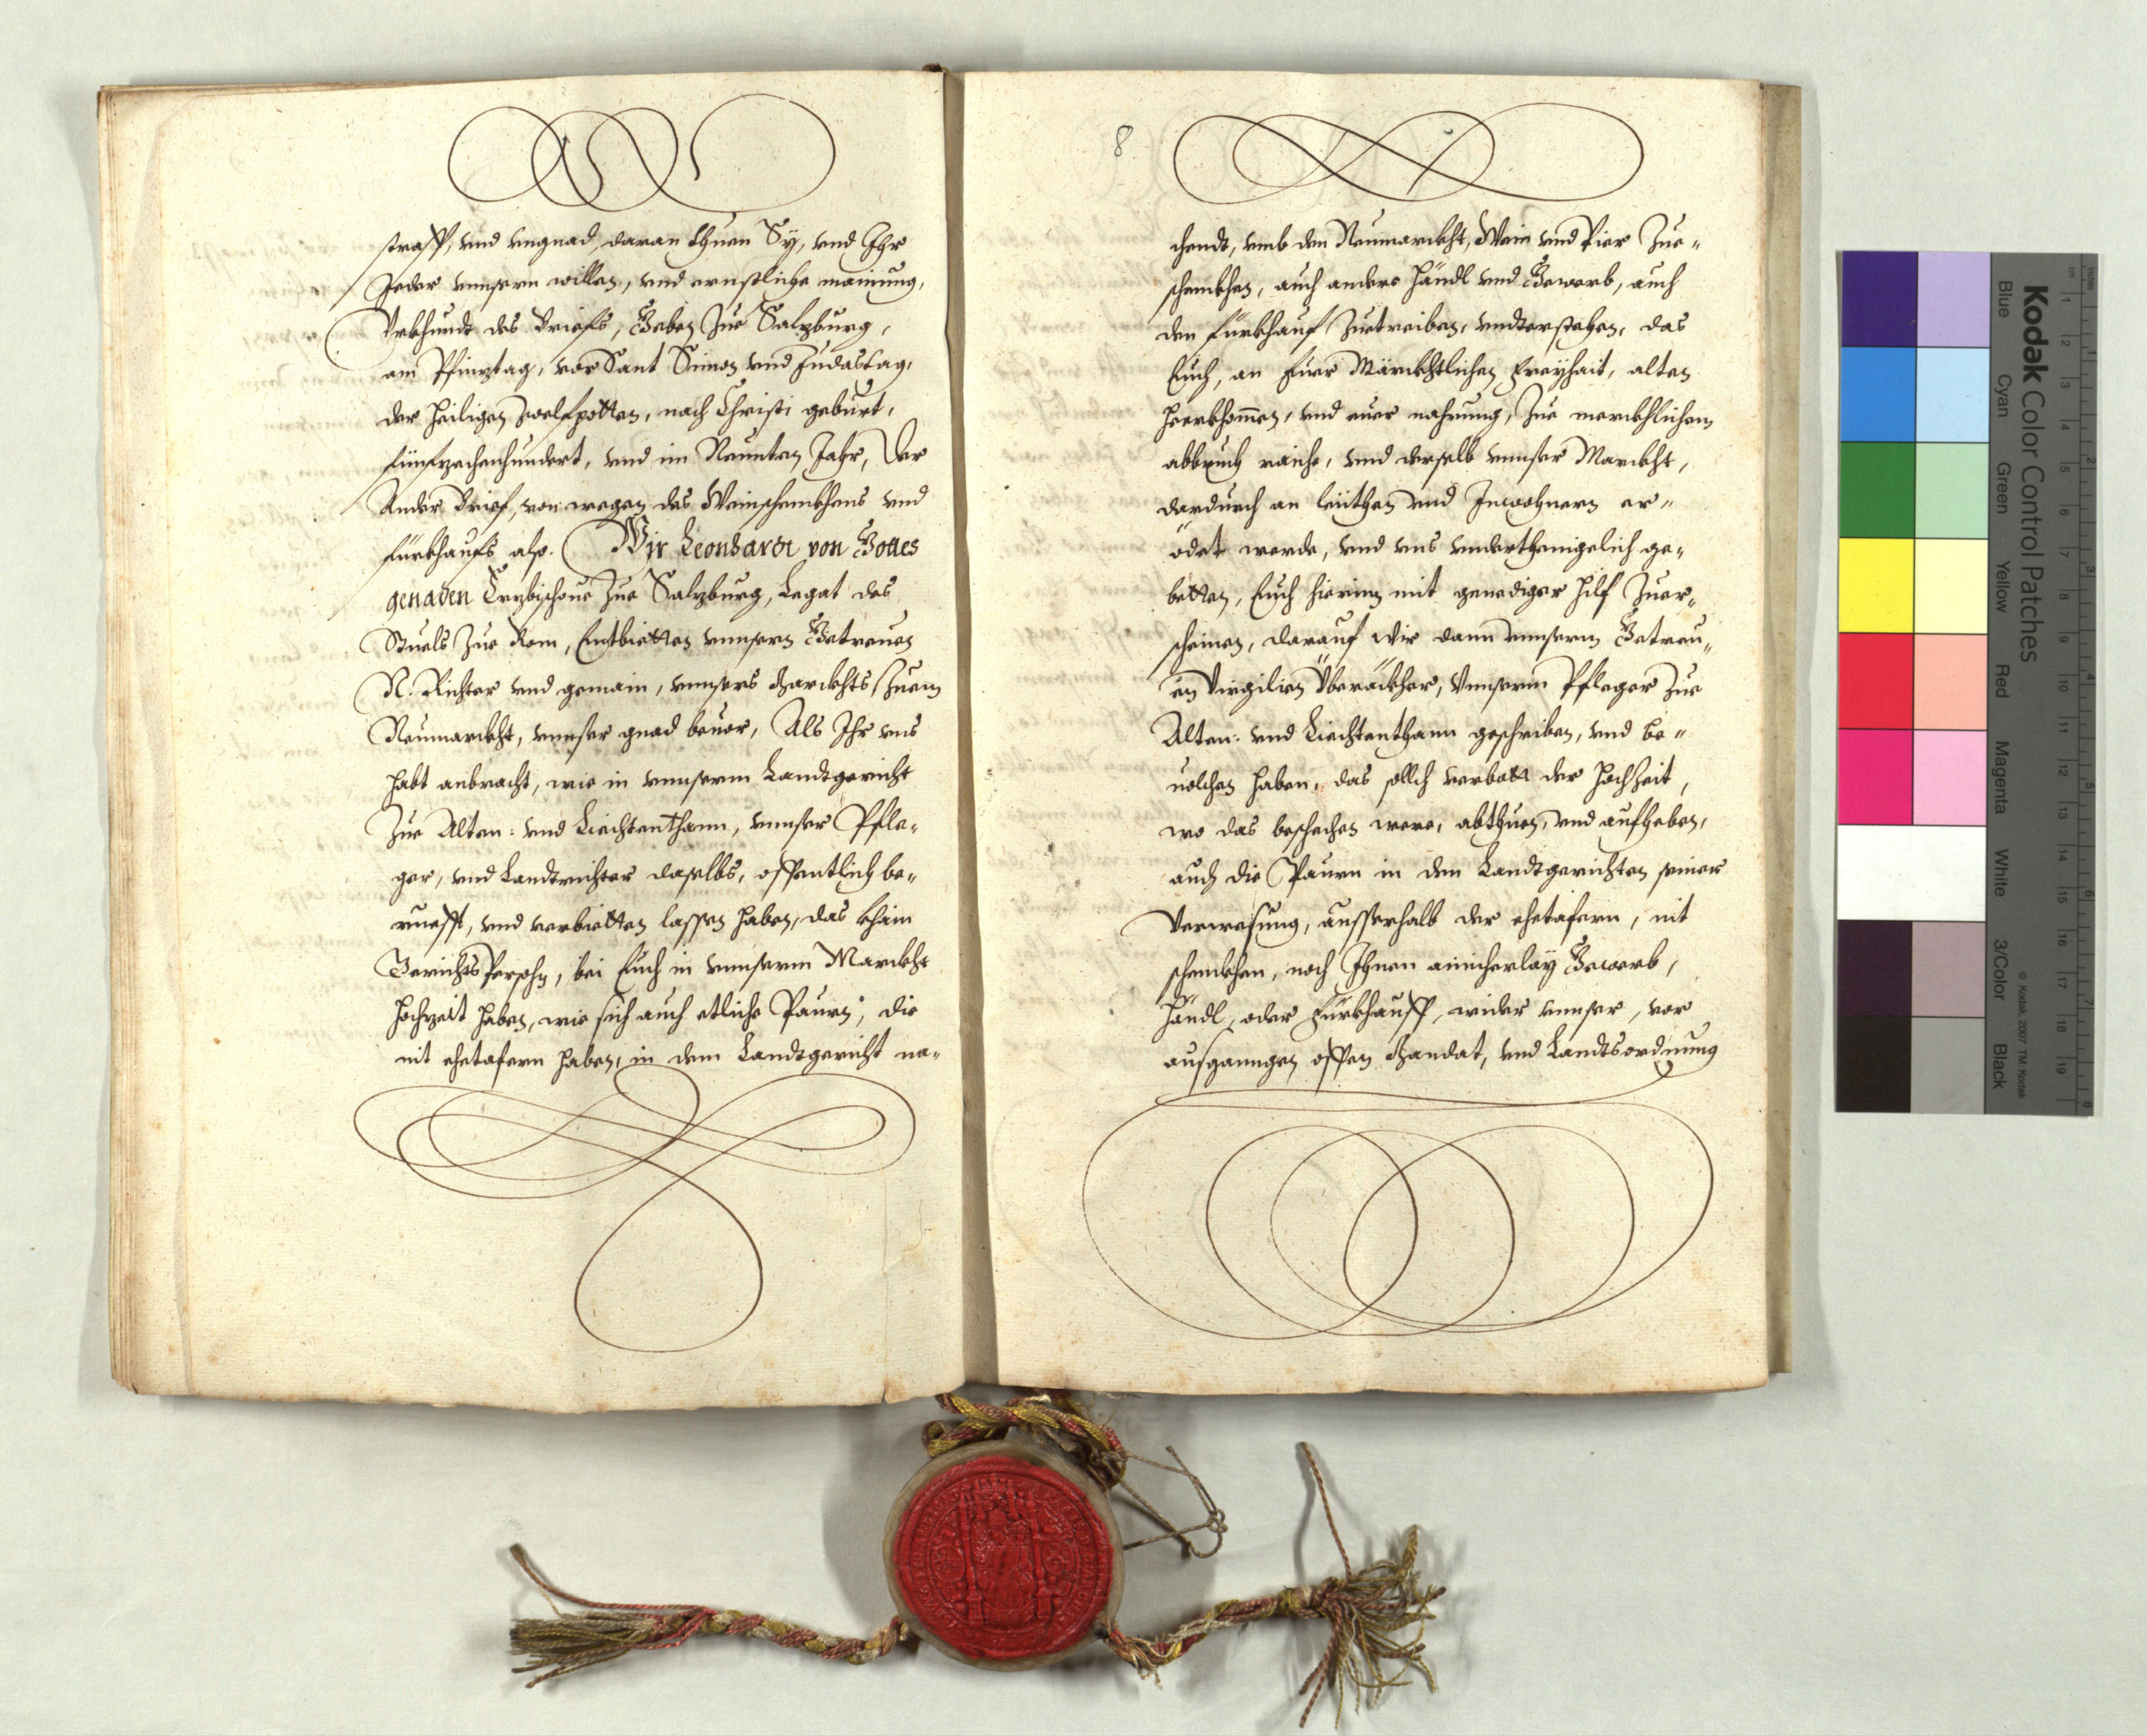 straff, vnd vngnad, daran thuen Sy, vnd Ihr
Jeder vnnsern willen, vnd ernstliche mainung,
Vrkhundt des Briefs, Geben Zue Salzburg,
am Pfinztag, vor Sant Simon vnd Judastag,
der heiligen zwelfpotten, nach Christi geburt,
fünfzechenhundert, vnd im Neunten Jahr, Der
Ander Brief, von wegen des Weinschenkhens vnd
fürkhaufs also. Wir Leonhardt von Gottes
genaden Erzbischoue Zue Salzburg, Legat des
Stuels Zue Rom, Embietten vnnsern Getreuen
N. Richter vnd gemain, vnnsers Marckhts Zuem
Neumarckht, vnnser gnad beuor, Als Ihr vns
habt anbracht, wie in vnnserm Landtgericht
Zue Alten: vnd Liechtenthann, vnnser Pfle-
ger, vnd Landtrichter daselbs, offentlich be-
ruefft, vnd verbietten lassen haben, das khain
Gerichts Persohn, bei Euch in vnnserm Marckht
hochzeit haben, wie sich auch etliche Paurn, die
nit ehetafern haben, in dem Landtgericht na-
8
chendt, vmb den Neumarckht, Wein vnd Pier Zue-
schenkhen, auch andere händl vnd Gewerb, auch
den fürkhauf Zuetreiben, vndterstehen, das
Euch, an Euer Märckhtlichen freyhait, alten
heerkhomen, vnd euer nahrung, Zue merckhlichem
abbruch raiche, vnd derselb vnnser Marckht,
dardurch an leüthen vnd Inwohnern er-
ödet werde, vnd vns vnderthenigelich ge-
betten, Euch hierinn mit genediger hilf Zuer-
scheinen, darauf wir dann vnnserm Getreu-
en Virgilien Überäckher, Vnnserm Pfleger Zue
Alten: vnd Liechtenthann geschriben, vnd be-
uolchen haben, das sollch verbott der hochzeit,
wo das beschechen were, abthuen, vnd aufheben,
auch die Paurn in den Landtgerichten seiner
Verwesung, ausserhalb der ehetafern, nit
schenkhen, noch Ihnen ainicherlay Gewerb,
händl, oder fürkhauff, wider vnnser, vor
ausganngen offen Mandat, vnd Landtsordnung
Kodak Color Control Patches
Blue Cyan Green Yellow Red Magenta White 3/Color Black
© Kodak, 2007 TM: Kodak
inches 1 2 3 4 5 6 7 8
cm 1 2 3 4 5 6 7 8 9 10 11 12 13 14 15 16 17 18 19